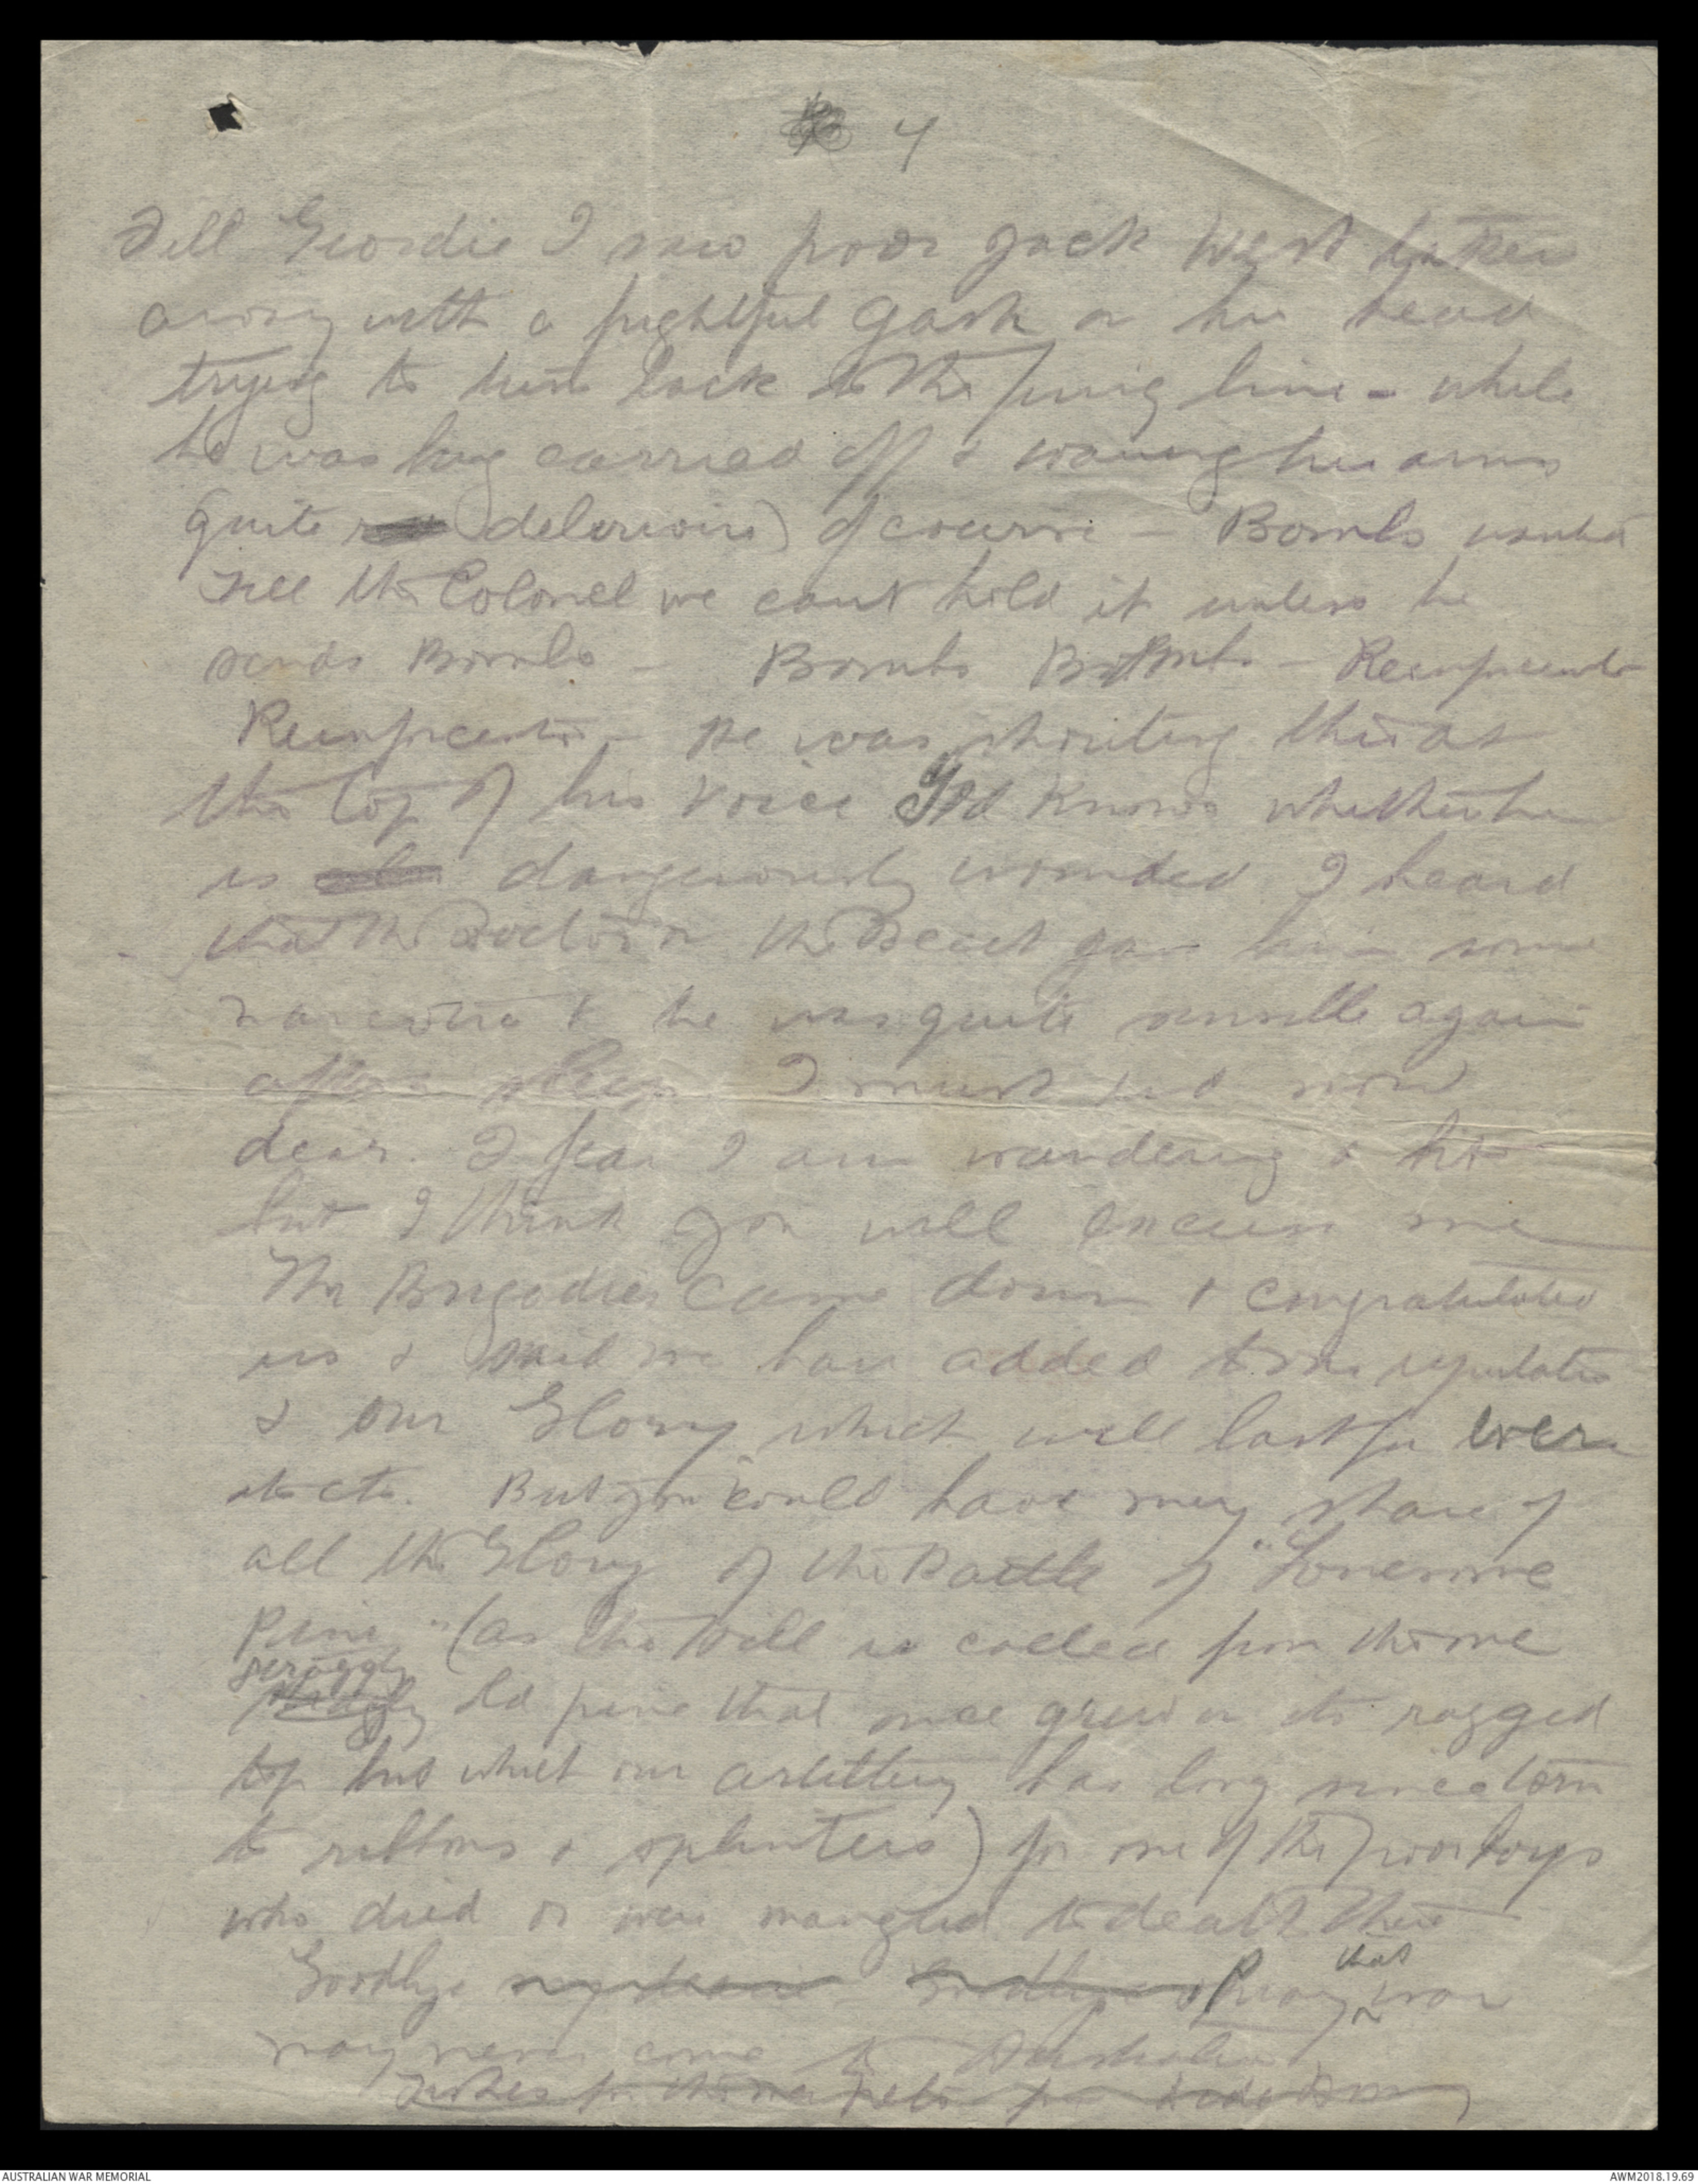 4
Tell Geordie I saw poor Jack West taken
away with a frightful gash on his head
trying to turn back to the firing line - while
he was being carried off & waving his arms
quite delerious) of course - Bombs wanted
Tell the Colonel we cant hold it unless he
sends Bombs - Bombs Bombs - Reinforcements
Reinforcements - He was shouting this at
the top of his voice God knows whether he
is dangerously wounded I heard
that the Doctor on the Beach gave him some
narcotic & he was quite sensible again
after a sleep I must end now
dear. I fear I am wandering a bit
but I think you will excuse me
The Brigadier came down & congratulated
us & said we have added to our reputation
& our Glory which will last for ever
etc etc. But you could have my share of
all the Glory of the Battle of "Lonesome
Pine" (as the hill is called from the one
scraggly
old pine that once grew on its ragged
top but which our artillery has long since torn
to ribbons & splinters) for one of the poor boys
who died or were mangled to death there
Goodbye my dearie Goodbye & Pray that war
may never come to Australia
Kisses for the
AUSTRALIAN WAR MEMORIAL
AWM2018.19.69